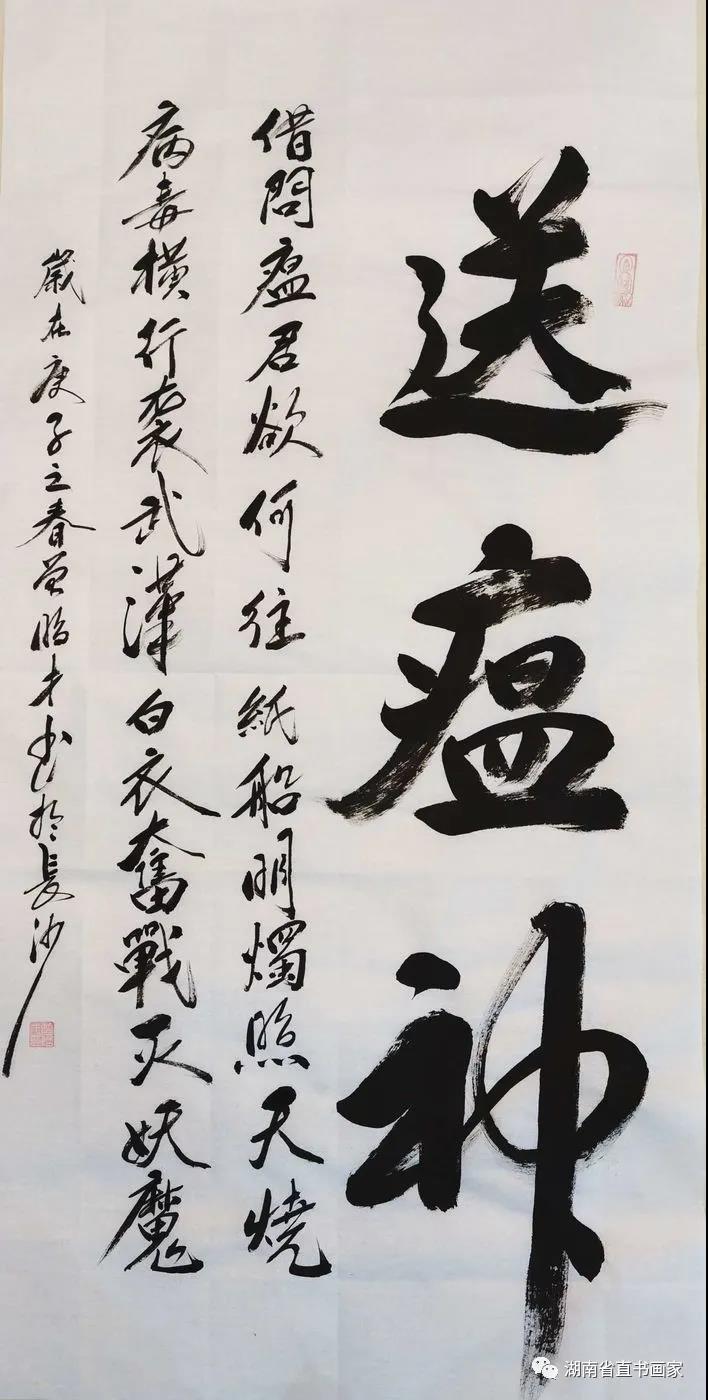 送瘟神
借問瘟君欲何往紙船明燭照天燒
病毒横行袭武漢白衣奮戰灭妖魔
歲在庚子之春曾才书於長沙
湖南省直书画家